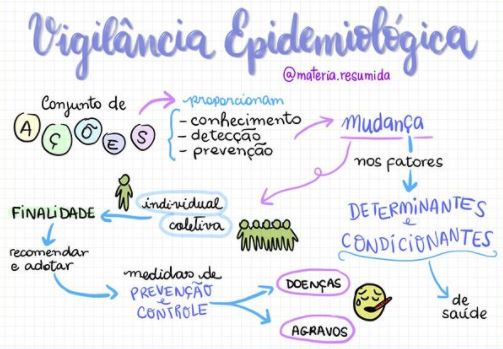 Vigilância Epidemiológica
@materia.resumida
Conjunto de
AÇÕES
proporcionam
- conhecimento
- detecção
- prevenção
mudança
nos fatores
DETERMINANTES
e
CONDICIONANTES
de
saúde
individual
coletiva
FINALIDADE
recomendar
e adotar
medidas de
PREVENÇÃO
e
CONTROLE
DOENÇAS
AGRAVOS